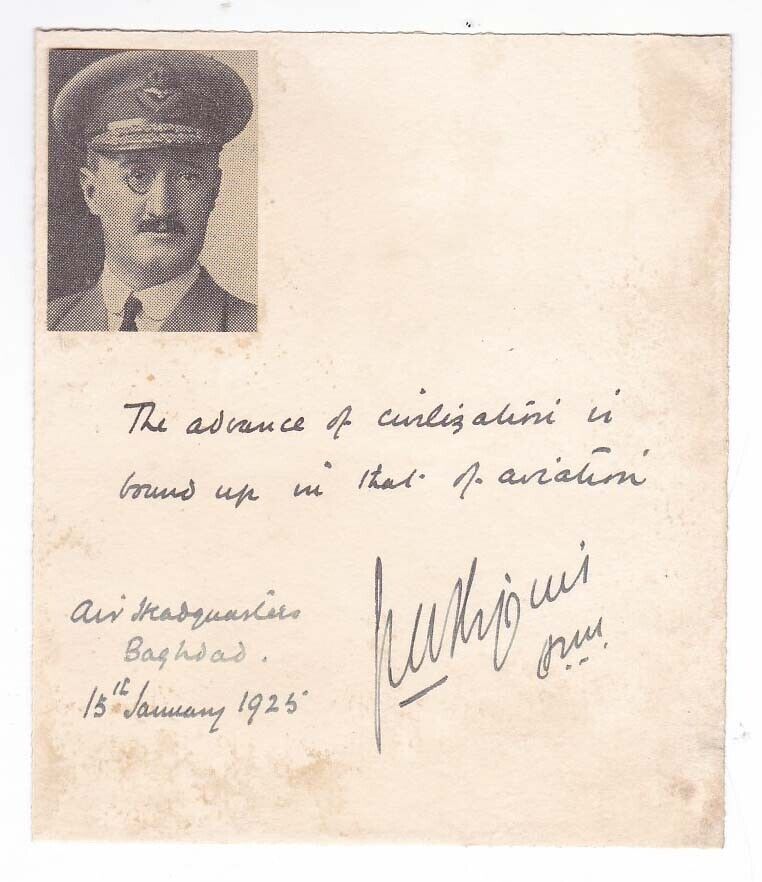 The advance of civilization is
bound up in that of aviation
Air Headquarters
Baghdad.
15th January 1925
JMHiggins
AVM